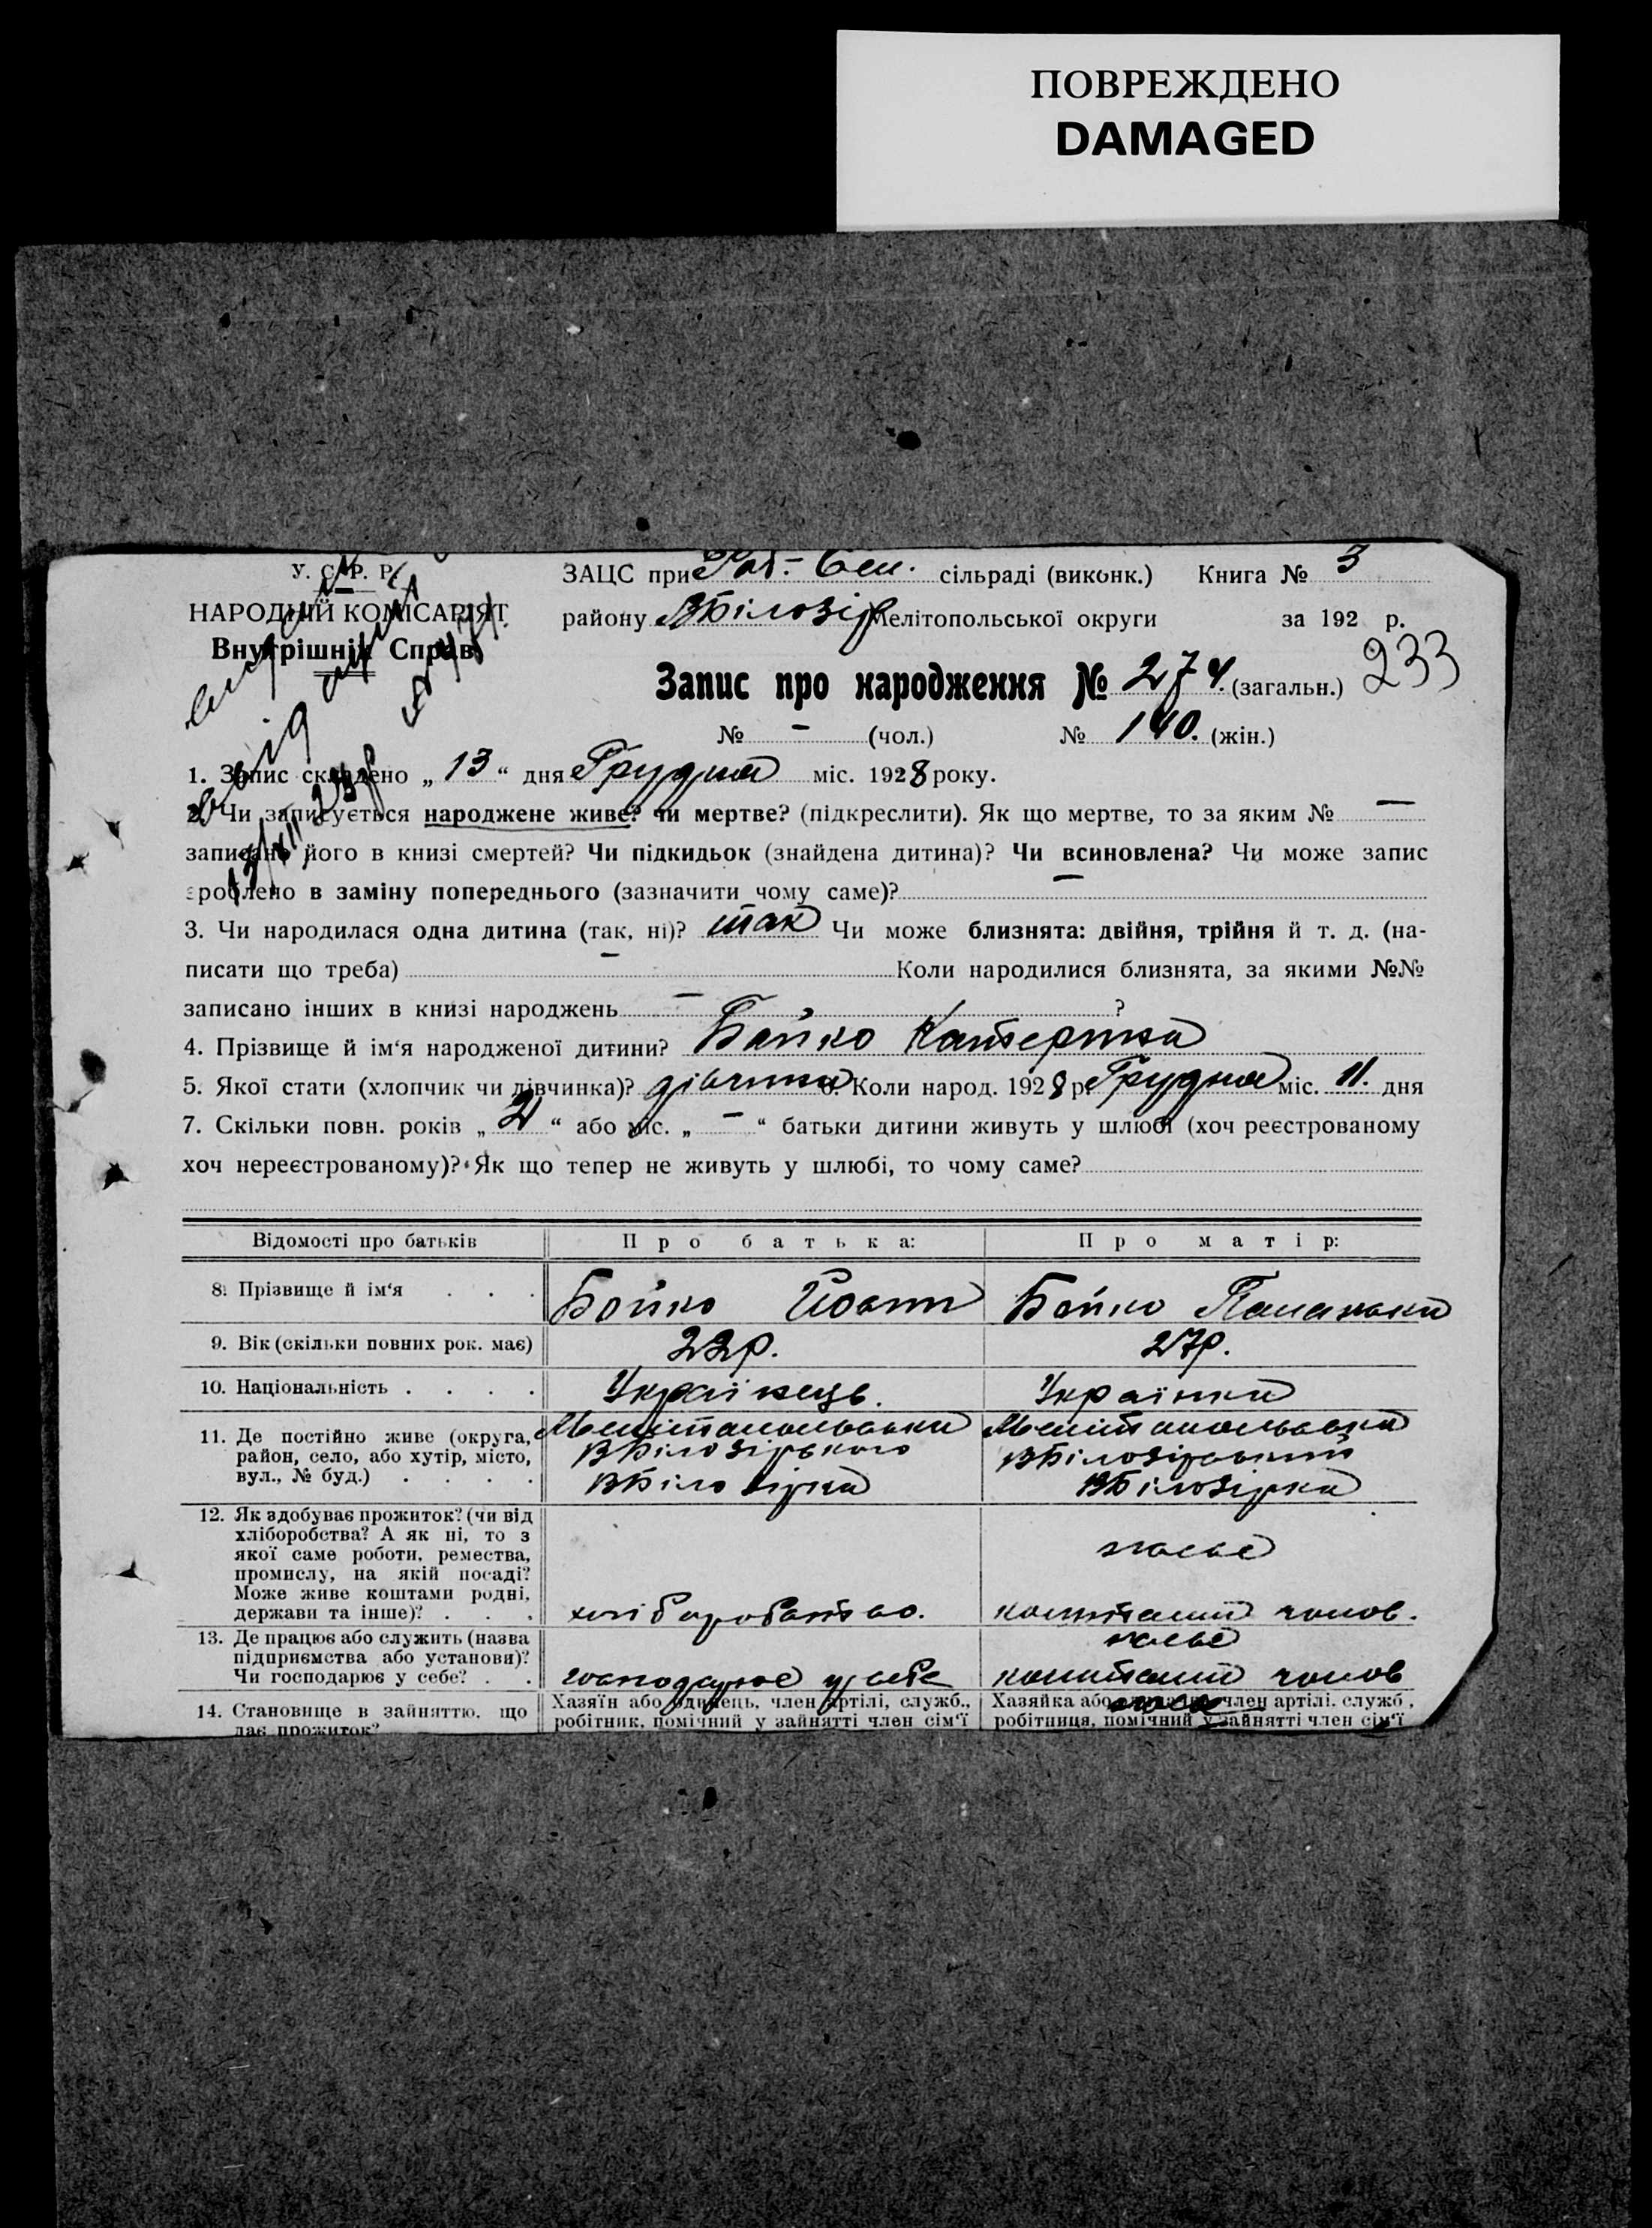 ПОВРЕЖДЕНО
DAMAGED
У. С. Р. Р.
НАРОДНІЙ КОМІСАРІЯТ
Внутрішніх Справ
ЗАЦС при сільраді (виконк.) Книга № 3
району ВБілозір Мелітопольської округи за 192 р.
233
Запис про народження № 274. (загальн.)
№ – (чол.) № 140. (жін.)
1. Запис складено „ 13 “ дня Грудня міс. 1928 року.
2. Чи записується народжене живе? чи мертве? (підкреслити). Як що мертве, то за яким № —
записано його в книзі смертей? Чи підкидьок (знайдена дитина)? Чи всиновлена? Чи може запис
зроблено в заміну попереднього (зазначити чому саме)? —
3. Чи народилася одна дитина (так, ні)? так Чи може близнята: двійня, трійня й т. д. (на-
писати що треба) – Коли народилися близнята, за якими №№
записано інших в книзі народжень – ?
4. Прізвище й ім‘я народженої дитини? Бойко Катерина
5. Якої стати (хлопчик чи дівчинка)? дівчина 6. Коли народ. 1928 р. Грудня міс. 11. дня
7. Скільки повн. років „ “ або міс. „ – “ батьки дитини живуть у шлюбі (хоч реєстрованому
хоч нереєстрованому)? Як що тепер не живуть у шлюбі, то чому саме?
Відомості про батьків Про батька: Про матір:
8. Прізвище й ім‘я . . . Бойко Йован Бойко Палажка
9. Вік (скільки повних рок. має) 22р. 27р.
10. Національність . . . . Українець. Українка
11. Де постійно живе (округа, район, село, або хутір, місто, вул., № буд.) . . . .
Мелітопольська Мелітопольська
ВБілозірського ВБілозірський
ВБілозірка ВБілозірка
12. Як здобуває прожиток? (чи від
хліборобства? А як ні, то з
якої саме роботи, ремества,
промислу, на якій посаді?
Може живе коштами родні,
держави та інше)? . . .
хліборобство. коштами чолов.
13. Де працює або служить (назва
підприємства або установи)?
Чи господарює у себе? . .
господарює у себе коштами чолов
14. Становище в зайняттю, що
дає прожиток?
Хазяїн або одинець, член артілі, служб.,
робітник, помічний у зайнятті член сім‘ї
Хазяйка або член артілі, служб,
робітниця, помічний у зайнятті член сім‘ї